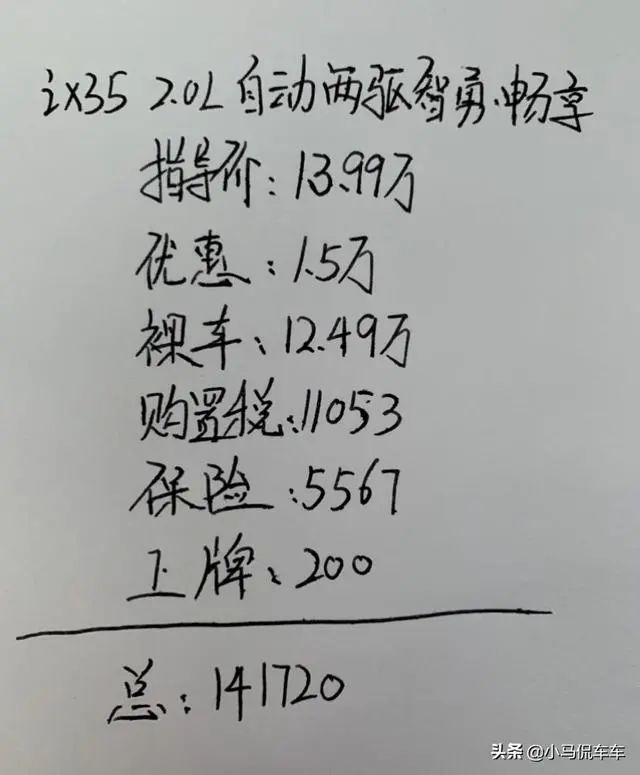 ix35 2.0L自动两驱智勇·畅享
指导价:13.99万
优惠:1.5万
裸车:12.49万
购置税:11053
保险:5567
上牌:200
总:141720
头条 @小马侃车车